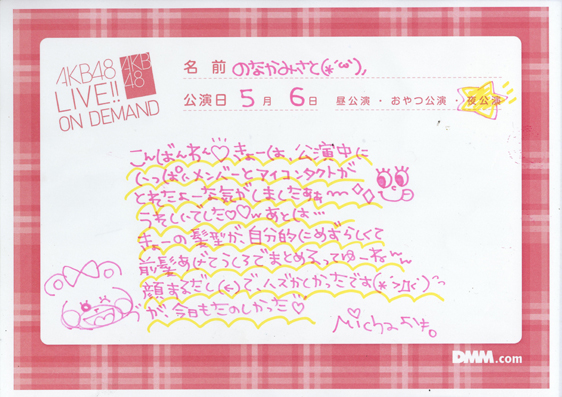 AKB48
LIVE!!
ON DEMAND
AKB
48
名前 のなかみさと(*´ω`),
公演日 5月 6日 昼公演・おやつ公演・夜公演
こんばんわん♡きょーは、公演中に
いっぱいメンバーとアイコンタクトが
とれたよー な気がしましたぁぁm
うれしいでした♡♡w あとは…
きょーの髪型が、自分的にめずらしくて
前髪あげてうしろでまとめる、ってゆーね〜
顔まるだし(←)で、ハズかしかったです
が、今日もたのしかった♡
Micha
DMM.com